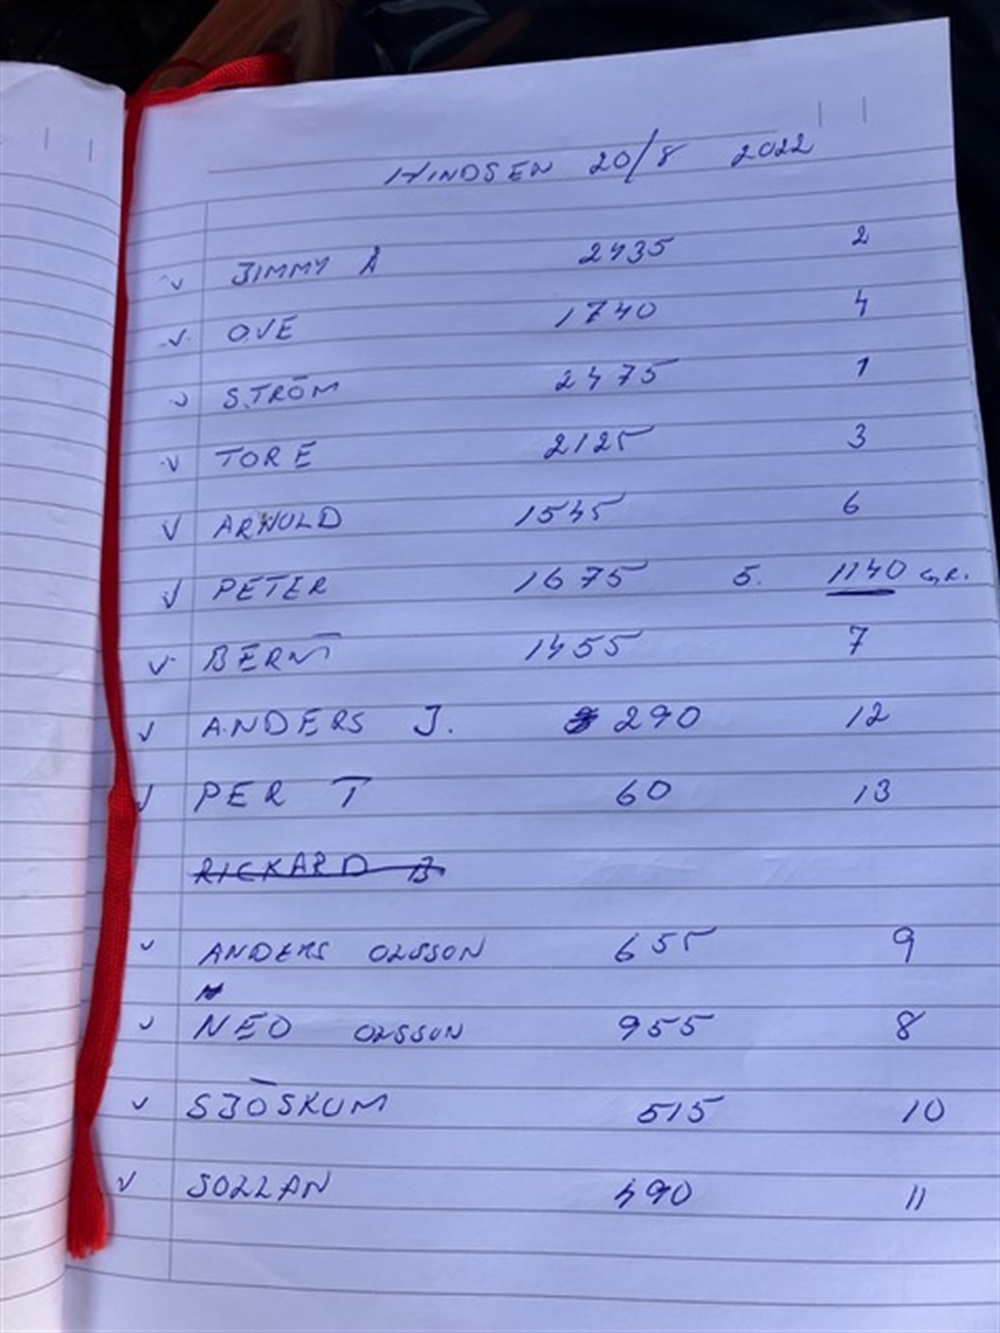 HINDSEN 20/8 2022
✓ JIMMY Å 2435 2
✓ OVE 1740 4
✓ STRÖM 2475 1
✓ TORE 2125 3
✓ ARNOLD 1545 6
✓ PETER 1675 5. 1140 GR.
✓ BERNT 1455 7
✓ ANDERS J. 290 12
✓ PER T 60 13
RICKARD B
✓ ANDERS OLSSON 655 9
✓ NEO OLSSON 955 8
✓ SJÖSKUM 515 10
✓ SOLLAN 490 11